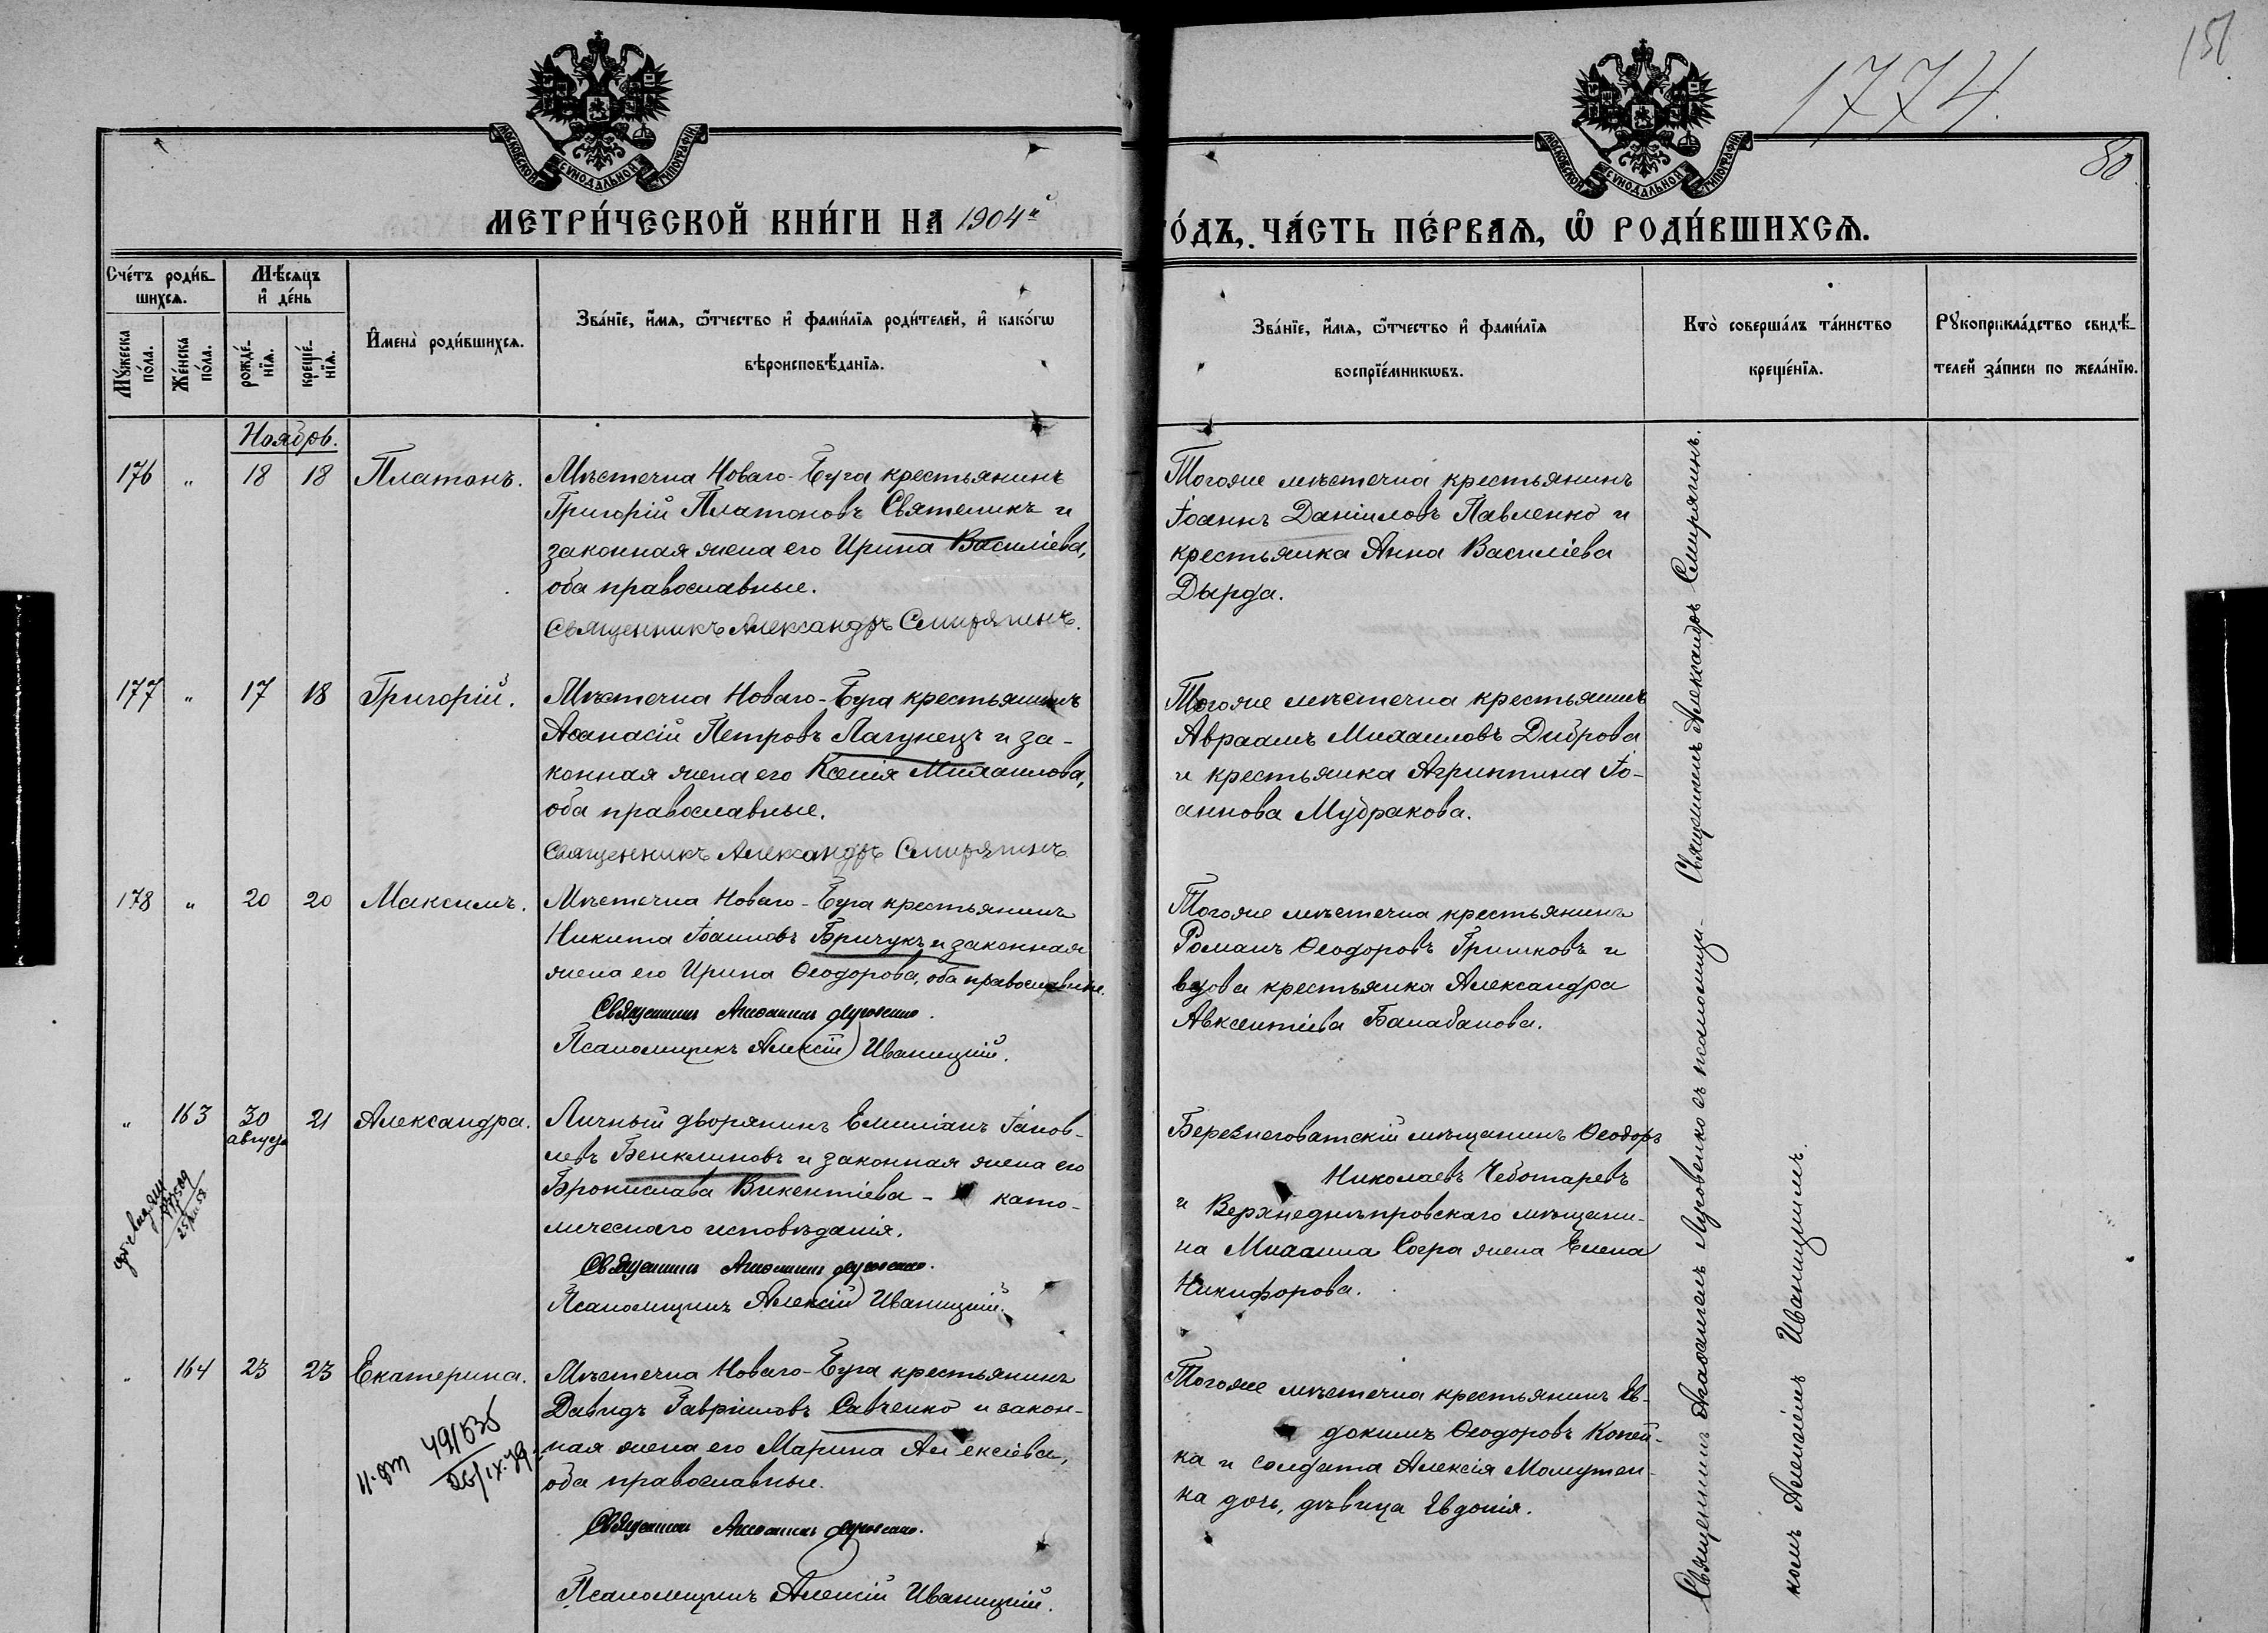 151
1774.
80
МОСКОВСКОЙ СѴНОДАЛЬНОЙ ТИПОГРАФІИ
МОСКОВСКОЙ СѴНОДАЛЬНОЙ ТИПОГРАФІИ
МЕТРИ́ЧЕСКОЙ КНИ́ГИ НА 1904й
ГО́ДЪ, ЧА́СТЬ ПЕ́РВАѦ, Ѿ РОДИ́ВШИХСѦ.
Сче́тъ роди́в-
шихсѧ.
Мꙋ́жеска
по́ла.
Же́нска
по́ла.
Мѣ́сѧцъ
и҆ де́нь
рожде́-
нїѧ.
креще́-
нїѧ.
И҆мена̀ роди́вшихсѧ.
Зва́нїе, и҆́мѧ, ѻ҆́тчество и҆ фами́лїѧ роди́телей, и҆ како́гѡ
вѣроисповѣ́данїѧ.
Зва́нїе, и҆́мѧ, ѻ҆́тчество и҆ фами́лїѧ
воспрїе́мникѡвъ.
Кто̀ соверша́лъ та́инство
креще́нїѧ.
Рꙋкоприкла́дство свидѣ́-
телей за́писи по жела́нїю.
Ноябрь.
176 " 18 18 Платонъ.
Мѣстечка Новаго-Буга крестьянинъ
Григорій Платоновъ Святеникъ и
законная жена его Ирина Василіева,
оба православные.
Священникъ Александръ Смирягинъ.
Тогоже мѣстечка крестьянинъ
Іоаннъ Даніиловъ Павленко и
крестьянка Анна Василіева
Дырда.
177 " 17 18 Григорій.
Мѣстечка Новаго-Буга крестьянинъ
Аѳанасій Петровъ Лагунецъ и за-
конная жена его Ксенія Михаилова,
оба православные.
Священникъ Александръ Смирягинъ
Тогоже мѣстечка крестьянинъ
Авраамъ Михаиловъ Диброва
и крестьянка Агриппина Іо-
аннова Мудракова.
178 " 20 20 Максимъ.
Мѣстечка Новаго-Буга крестьянинъ
Никита Іоанновъ Бричукъ и законная
жена его Ирина Ѳеодорова, оба православные.
Священникъ Агаѳангелъ Луговенко.
Псаломщикъ Алексій Иваницкій.
Тогоже мѣстечка крестьянинъ
Романъ Ѳеодоровъ Гришковъ и
вдова крестьянка Александра
Авксентіева Балабанова.
" 163 30 августа 21 Александра.
Личный дворянинъ Емиліанъ Іаков-
левъ Бенклиновъ и законная жена его
Бронислава Викентіева - като-
лическаго исповѣданія.
Священникъ Агаѳангелъ Луговенко.
Псаломщикъ Алексій Иваницкій.
Березнеговатскій мѣщанинъ Ѳеодоръ
Николаевъ Чеботаревъ
и Верхнеднѣпровскаго мѣщани-
на Михаила Согра жена Елена
Никифорова.
" 164 23 23 Екатерина.
491535
26/IX.79.
Мѣстечка Новаго-Буга крестьянинъ
Давидъ Гавріиловъ Савченко и закон-
ная жена его Марина Алексіева,
оба православные.
Священникъ Агаѳангелъ Луговенко.
Псаломщикъ Алексій Иваницкій.
Тогоже мѣстечка крестьянинъ Ев-
докимъ Ѳеодоровъ Копей-
ка и солдата Алексія Момутен-
ка дочь, дѣвица Евдокія.
Священникъ Агаѳангелъ Луговенко съ псаломщи- Священникъ Александръ Смирягинъ.
комъ Алексіемъ Иваницкимъ.